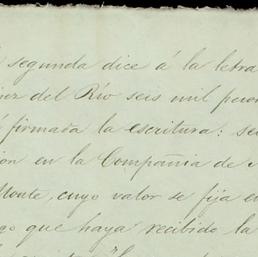 segunda dice á la letra
del Río seis mil pesos
firmada la escritura:
en la Compañia de
Monte, cuyo valor se fija en
que haya recibido la